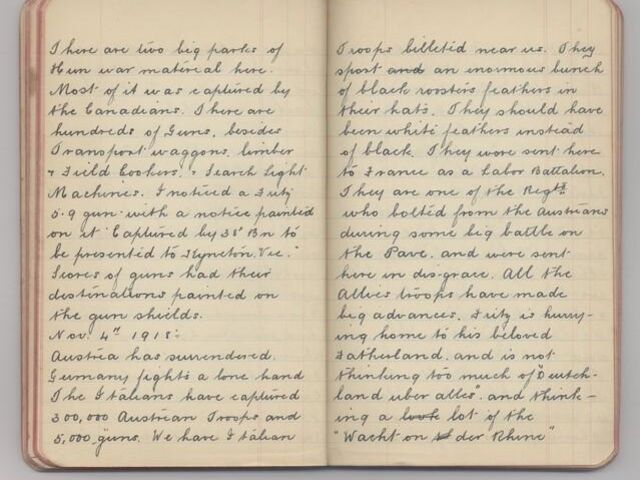 There are two big parks of
Hun war material here.
Most of it was captured by
the Canadians. There are
hundreds of Guns, besides
Transport waggons, limber
& Field Cookers, & Search Light
Machines. I noticed a Fritz
5.9 gun with a notice painted
on it "Captured by 38th Bn to
be presented to Kyneton. Vic."
Scores of guns had their
destinations painted on
the gun shields.
Nov. 4th 1918:
Austria has surrendered.
Germany fights a lone hand
The Italians have captured
300,000 Austrian Troops and
5,000 guns. We have Italian
Troops billetid near us. They
sport and an enormous bunch
of black roosters feathers in
their hats. They should have
been white feathers instead
of black. They were sent here
to France as a Labor Battalion.
They are one of the Regts
who bolted from the Austrians
during some big battle on
the Pave. and were sent
here in disgrace. All the
Allies troops have made
big advances. Fritz is hurry-
ing home to his beloved
Fatherland, and is not
thinking too much of "Deutch-
land uber alles". and think-
ing a lot of the
"Wacht on der Rhine"